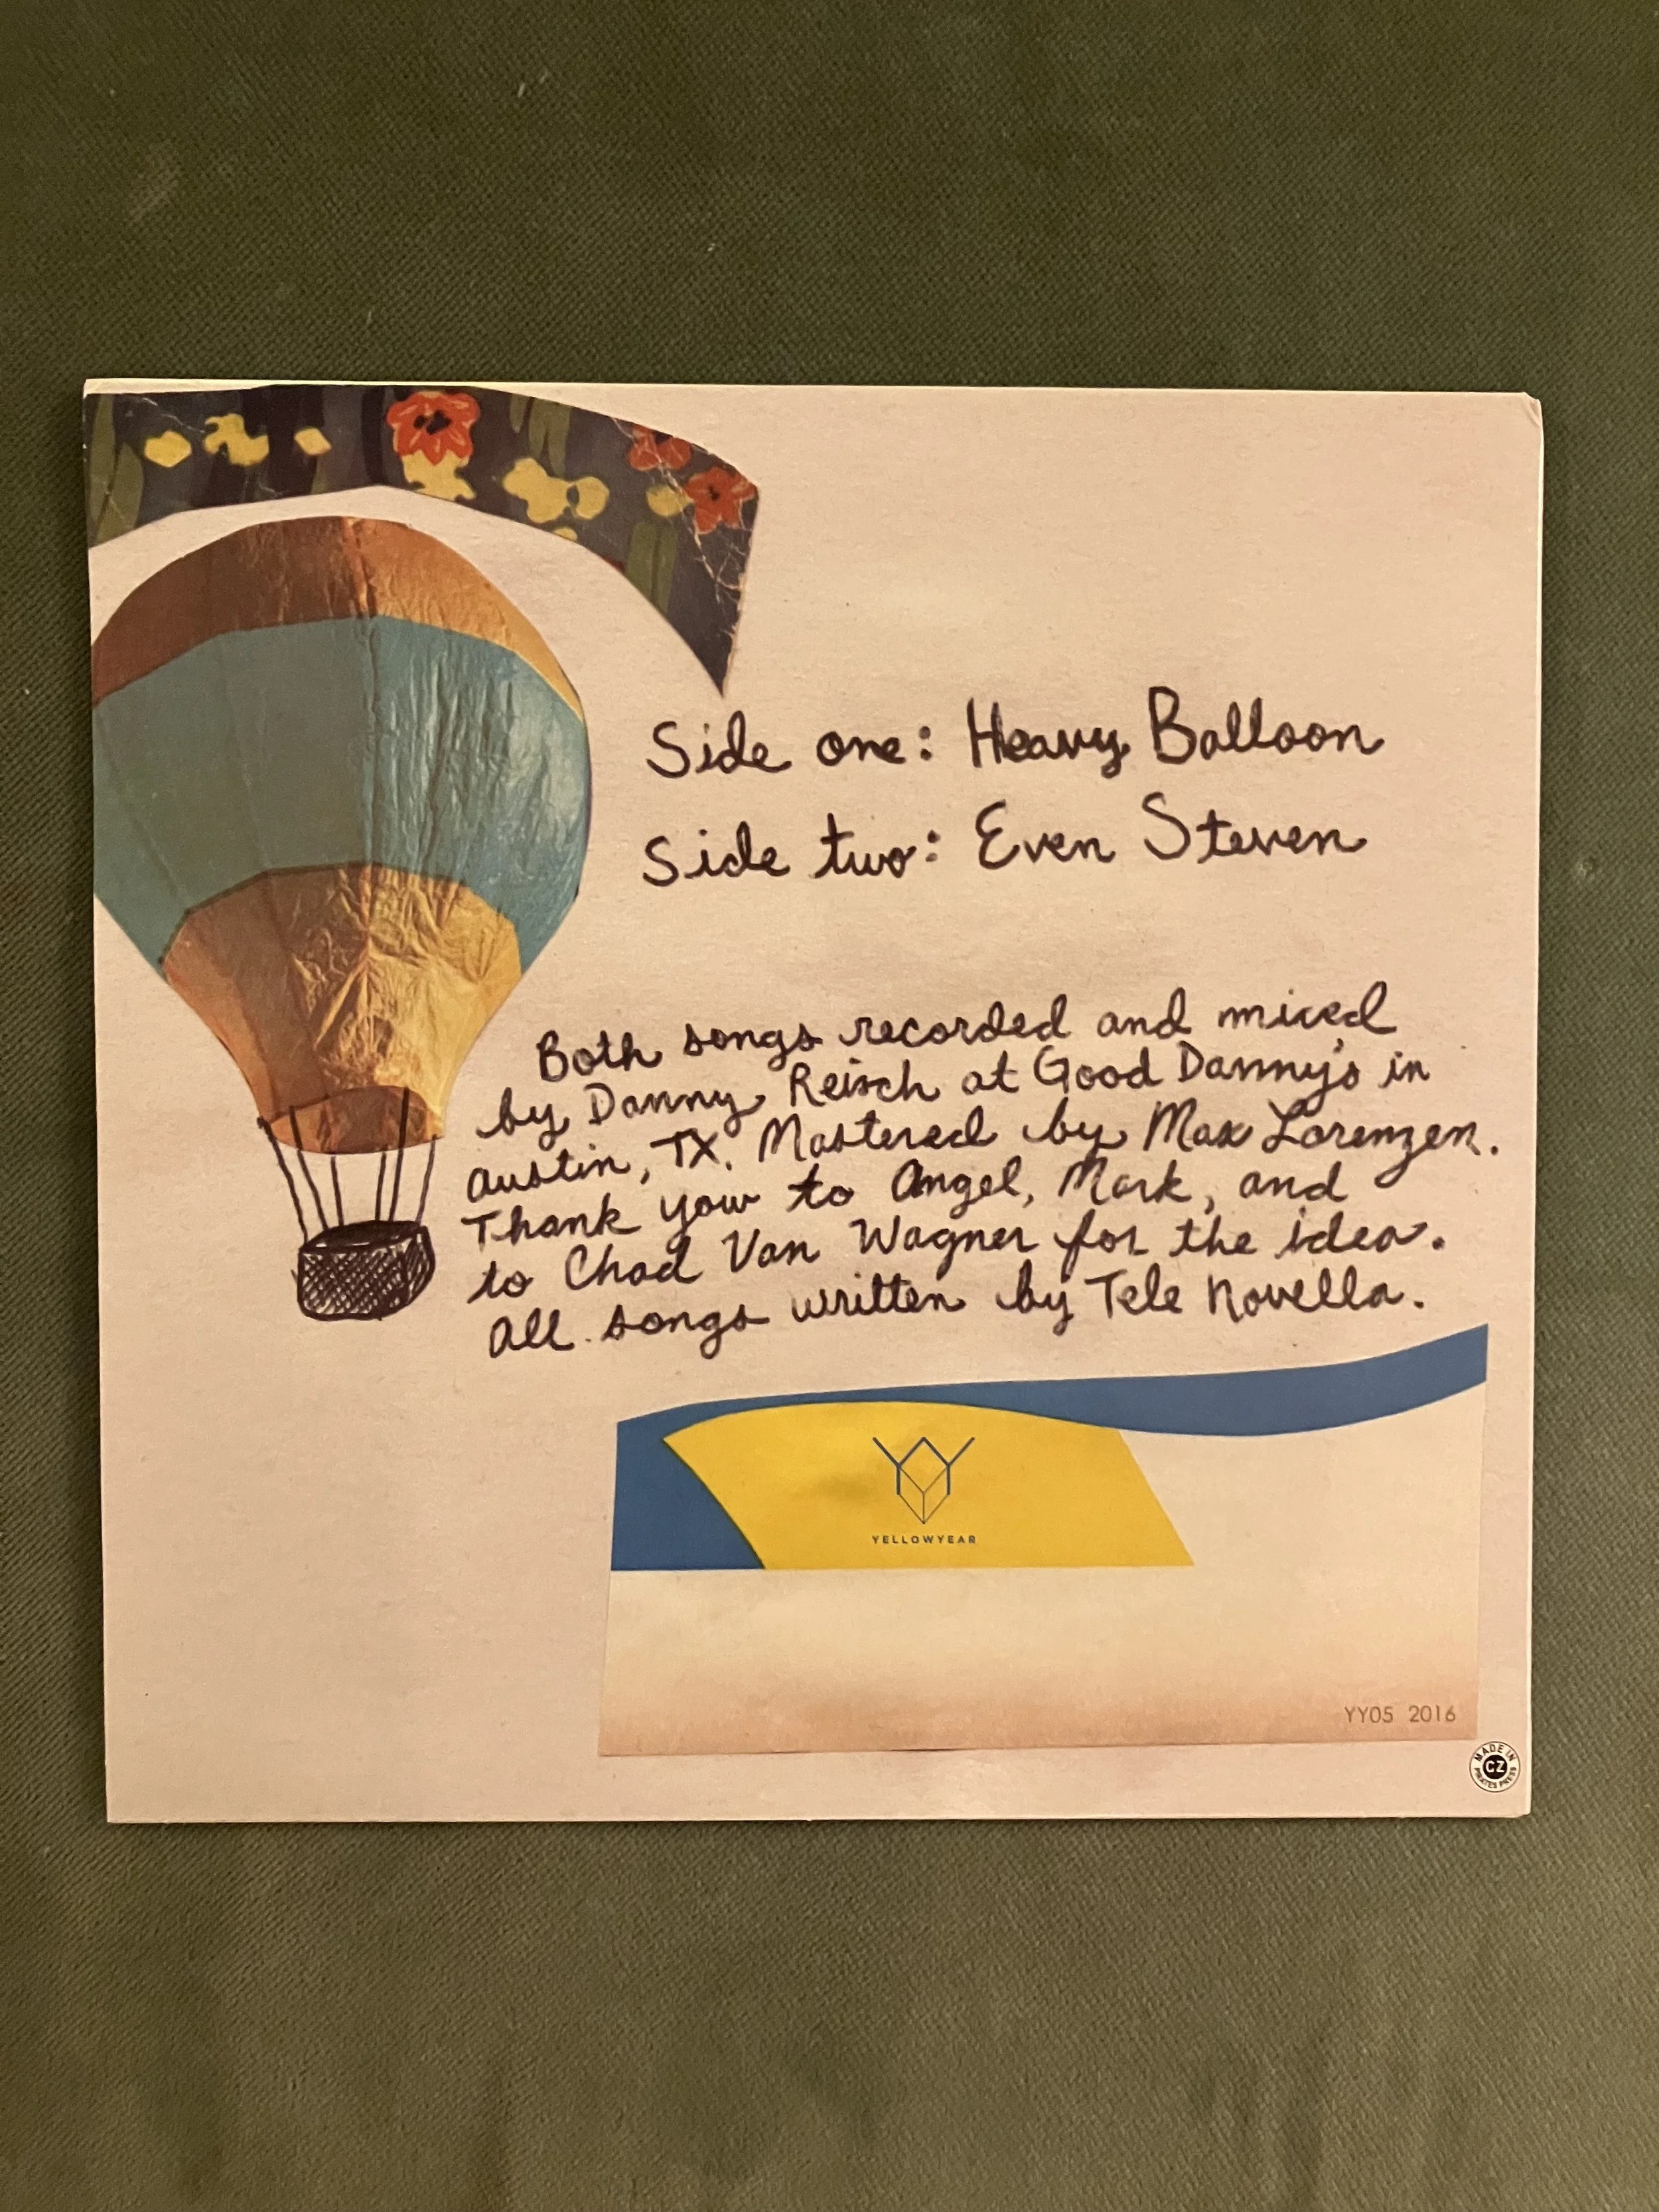 Side one: Heavy Balloon
Side two: Even Steven
Both songs recorded and mixed
by Danny Reisch at Good Danny's in
Austin, TX. Mastered by Max Lorenzen.
Thank you to Angel, Mark, and
to Chad Van Wagner for the idea.
All songs written by Tele Novella.
YELLOWYEAR
YY05 2016
MADE IN
CZ
PIRATES PRESS